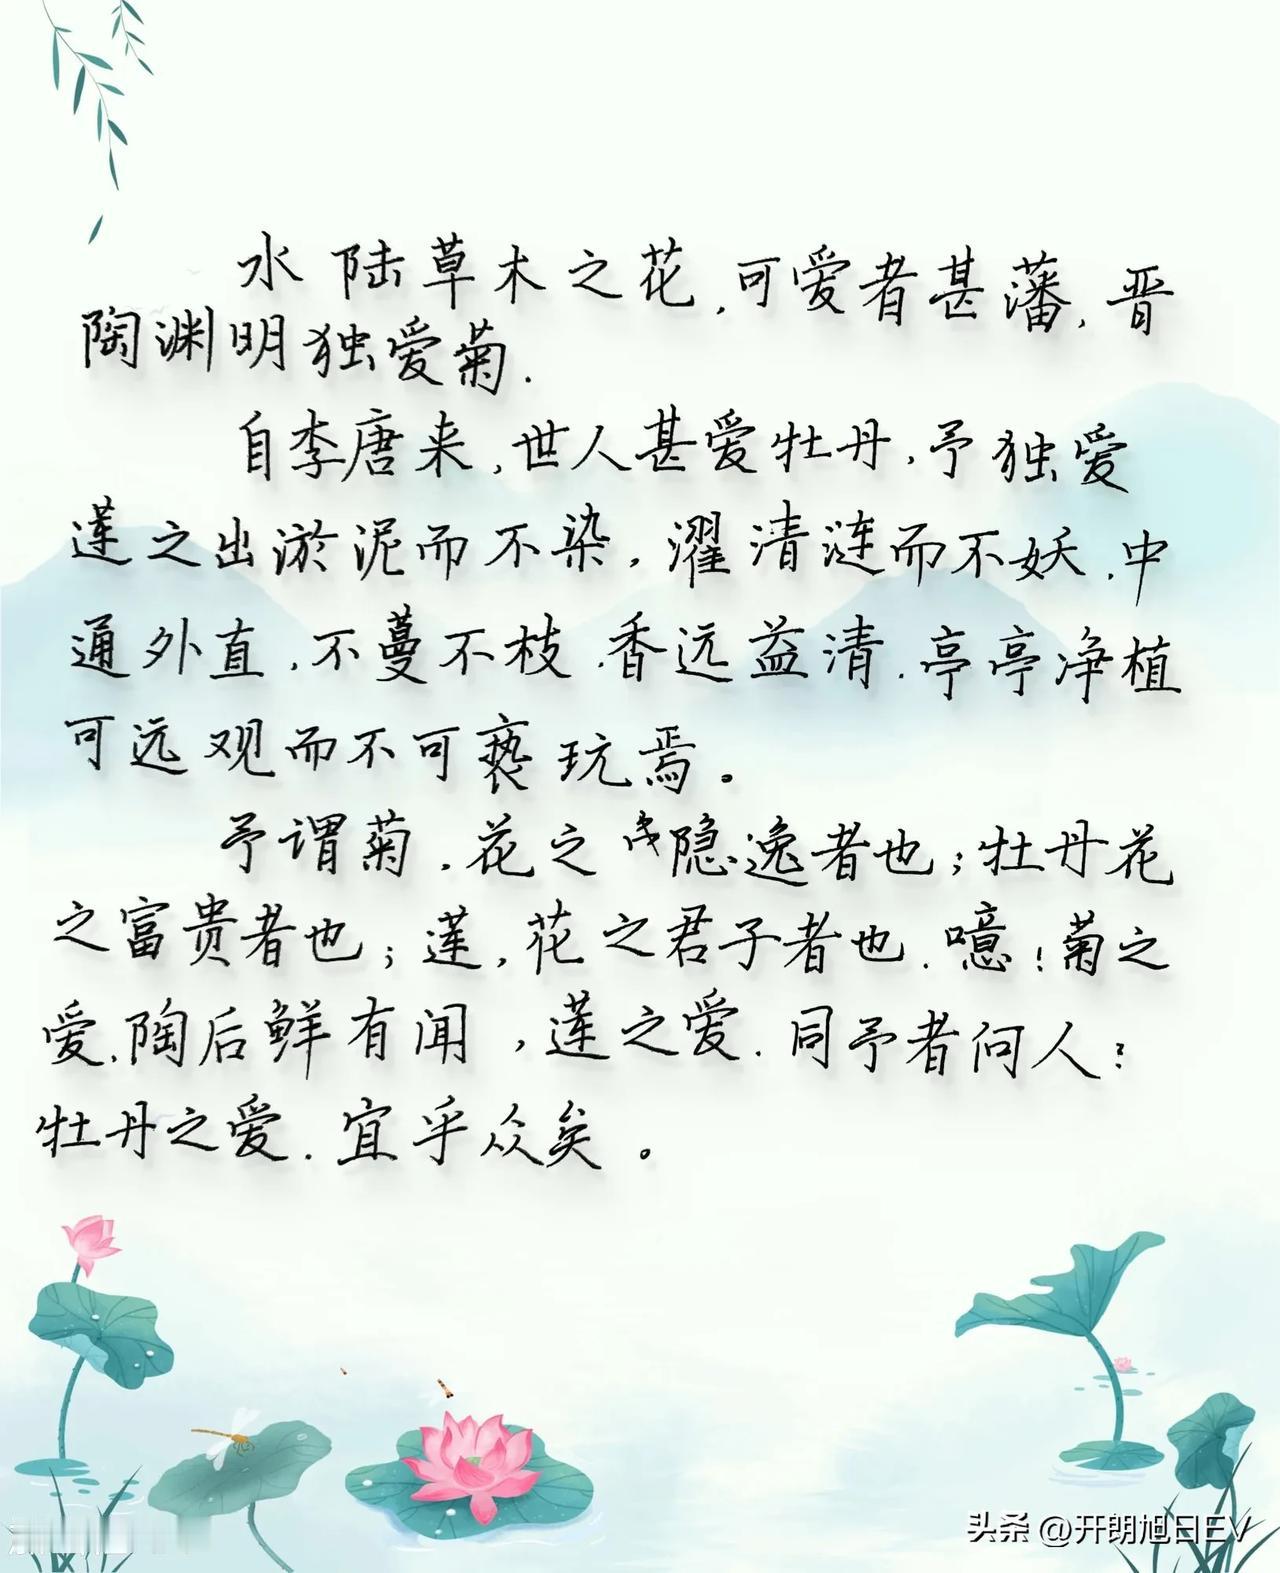 水陆草木之花,可爱者甚藩,晋
陶渊明独爱菊.
自李唐来,世人甚爱牡丹,予独爱
莲之出淤泥而不染,濯清涟而不妖.中
通外直,不蔓不枝.香远益清.亭亭净植
可远观而不可亵玩焉。
予谓菊.花之隐逸者也;牡丹花
之富贵者也;莲,花之君子者也.噫!菊之
爱.陶后鲜有闻,莲之爱.同予者问人?
牡丹之爱.宜乎众矣。
头条 @开朗旭日EV